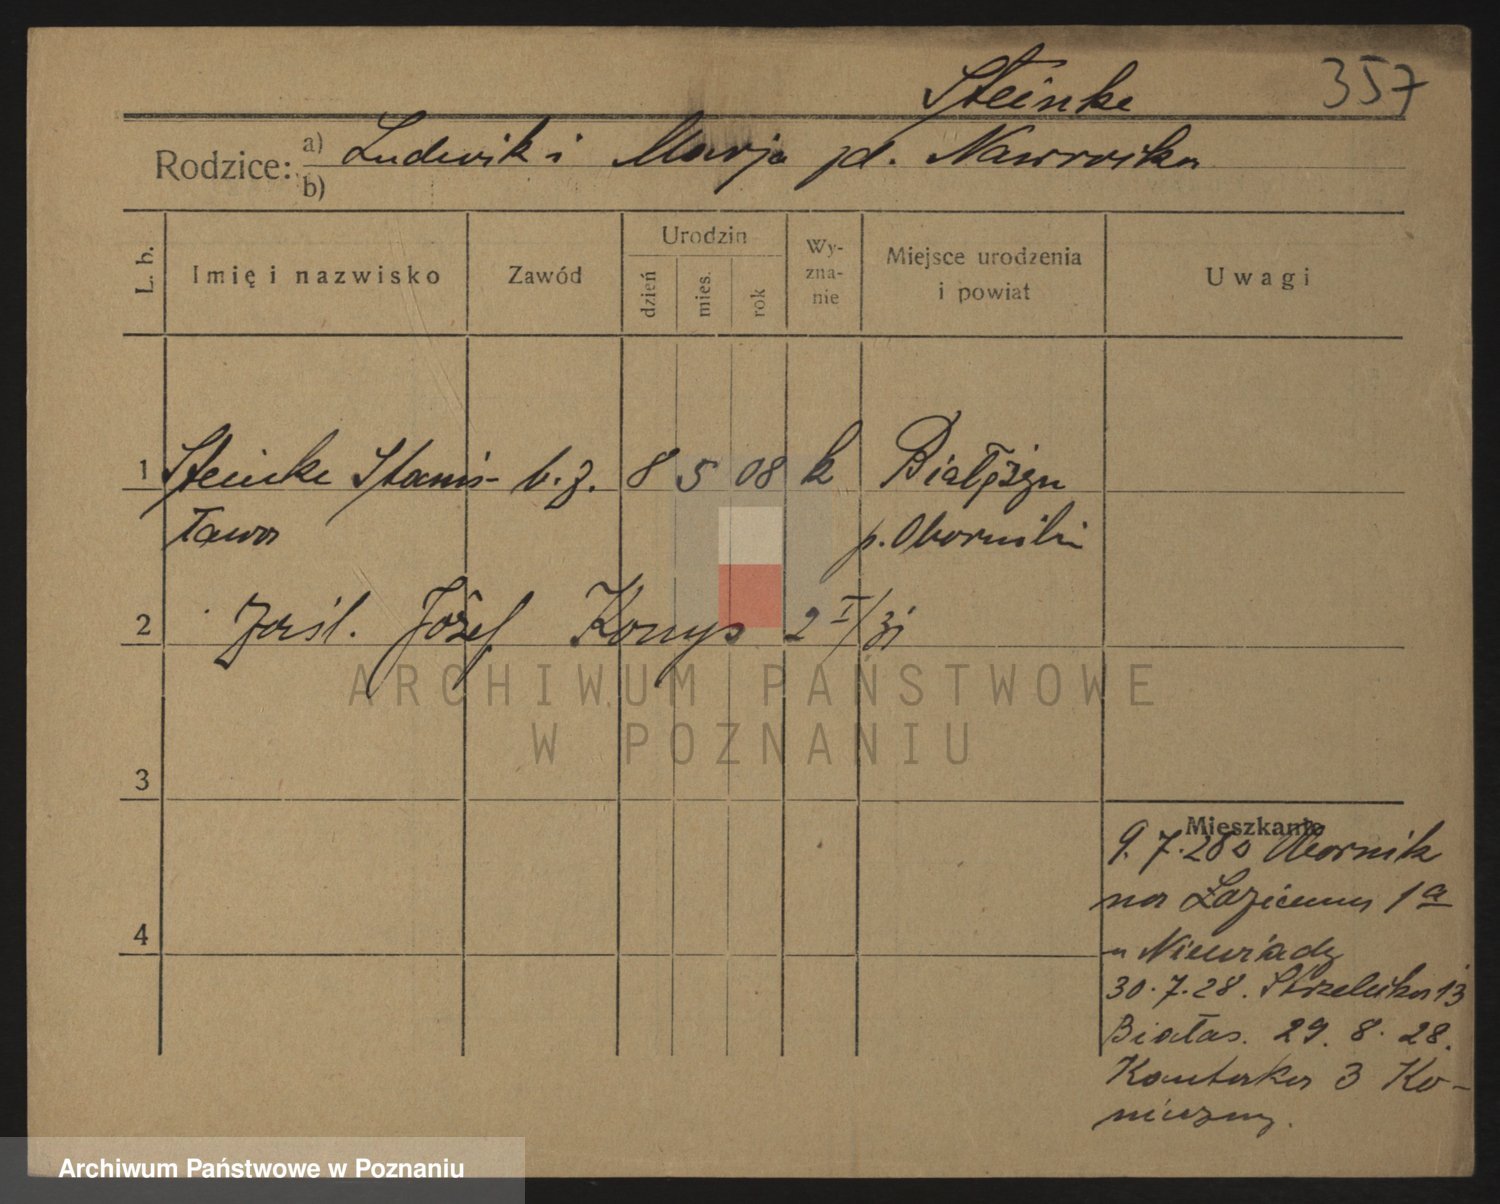 Steinke 357
Rodzice: a) Ludwik i Marja zd. Nawrocka
b)
L. b. Imię i nazwisko Zawód Urodzin dzień mies. rok Wyznanie Miejsce urodzenia i powiat Uwagi
1 Steinke Stanis- b. z. 8 5 08 k Białężyn
ława p. Oborniki
2 Józef 2 I/31
3
ARCHIWUM PAŃSTWOWE
W POZNANIU
4
Mieszkanie
9.7.28 z Obornik
na Łazienna 1a
u Niewiady
30.7.28. Strzelecka 13
Białas. 29. 8. 28.
Kantaka 3 Ko-
nieczny.
Archiwum Państwowe w Poznaniu